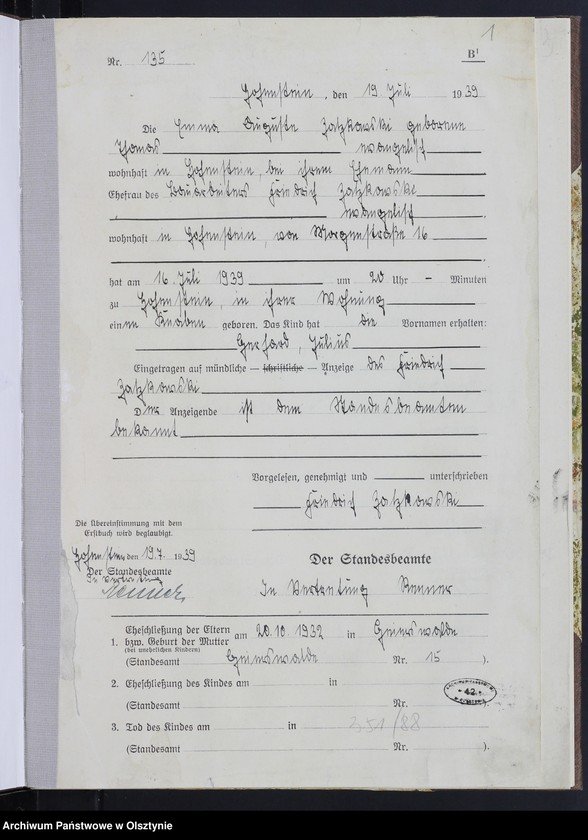 1
Nr. 135
B¹
Hohenstein, den 19 Juli 1939
Die Emma Auguste Zatzkowski geborene
Thomas evangelisch
wohnhaft in Hohenstein, bei ihrem Ehemann
Ehefrau des Bauarbeiters Friedrich Zatzkowski
, evangelisch
wohnhaft in Hohenstein, von Morgenstraße 16
hat am 16. Juli 1939 um 20 Uhr - Minuten
zu Hohenstein, in ihrer Wohnung
einen Knaben geboren. Das Kind hat die Vornamen erhalten:
Gerhard, Julius
Eingetragen auf mündliche — schriftliche — Anzeige des Friedrich
Zatzkowski
Der Anzeigende ist dem Standesbeamten
bekannt
Vorgelesen, genehmigt und unterschrieben
Friedrich Zatzkowski
Die Übereinstimmung mit dem
Erstbuch wird beglaubigt.
Hohenstein den 19.7. 1939
Der Standesbeamte
In Vertretung
Der Standesbeamte
In Vertretung Renner
1. Eheschließung der Eltern
bzw. Geburt der Mutter
(bei unehelichen Kindern)
am 20.10.1932 in Geierswalde
(Standesamt Geierswalde Nr. 15 ).
2. Eheschließung des Kindes am in
(Standesamt Nr. ).
42
3. Tod des Kindes am in 351/88
(Standesamt Nr. ).
Archiwum Państwowe w Olsztynie